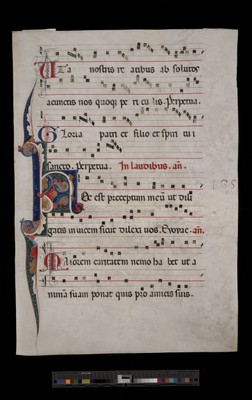 a nostris re atibus ab solutos
a cunctis nos quoqꝫ pe ri cu lis. Perpetua.
Gloria patri et filio et spiri tui
sancto. Perpetua. In laudibus. an̄.
Hoc est preceptum meū ut dili
gatis invicem sicut dilexi vos. Evovae. an̄.
Maiorem caritatem nemo ha bet ut a
nimā suam ponat quis pro amicis suis.